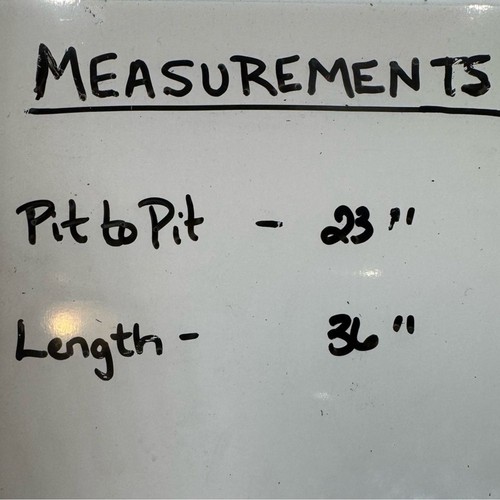 MEASUREMENTS
Pit to Pit - 23"
Length - 36"